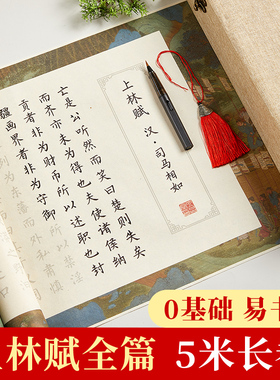 上林赋 汉·司马相如
亡是公听然而笑曰楚则失矣
而齐亦未为得也夫使诸侯纳
贡者非为财币所以述职也封
疆画界者非为守御
0基础 易
林赋全篇 5米长